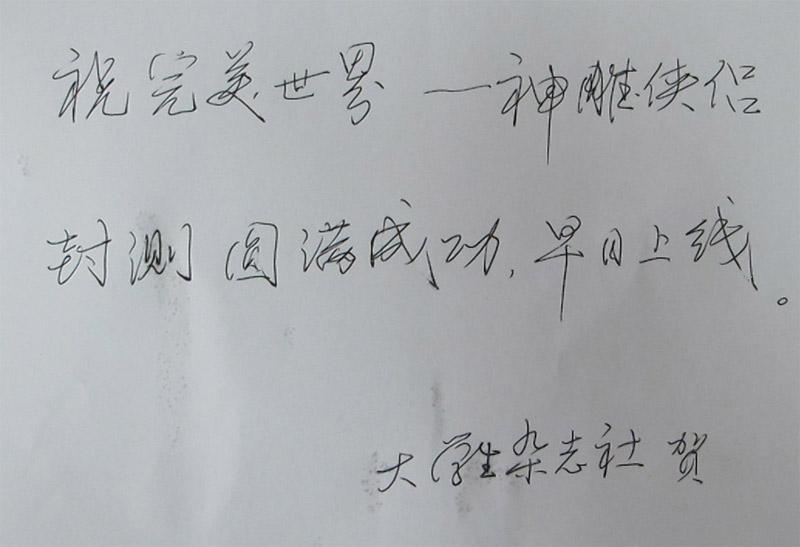 祝完美世界一神雕侠侣
封测圆满成功,早日上线。
大学生杂志社 贺